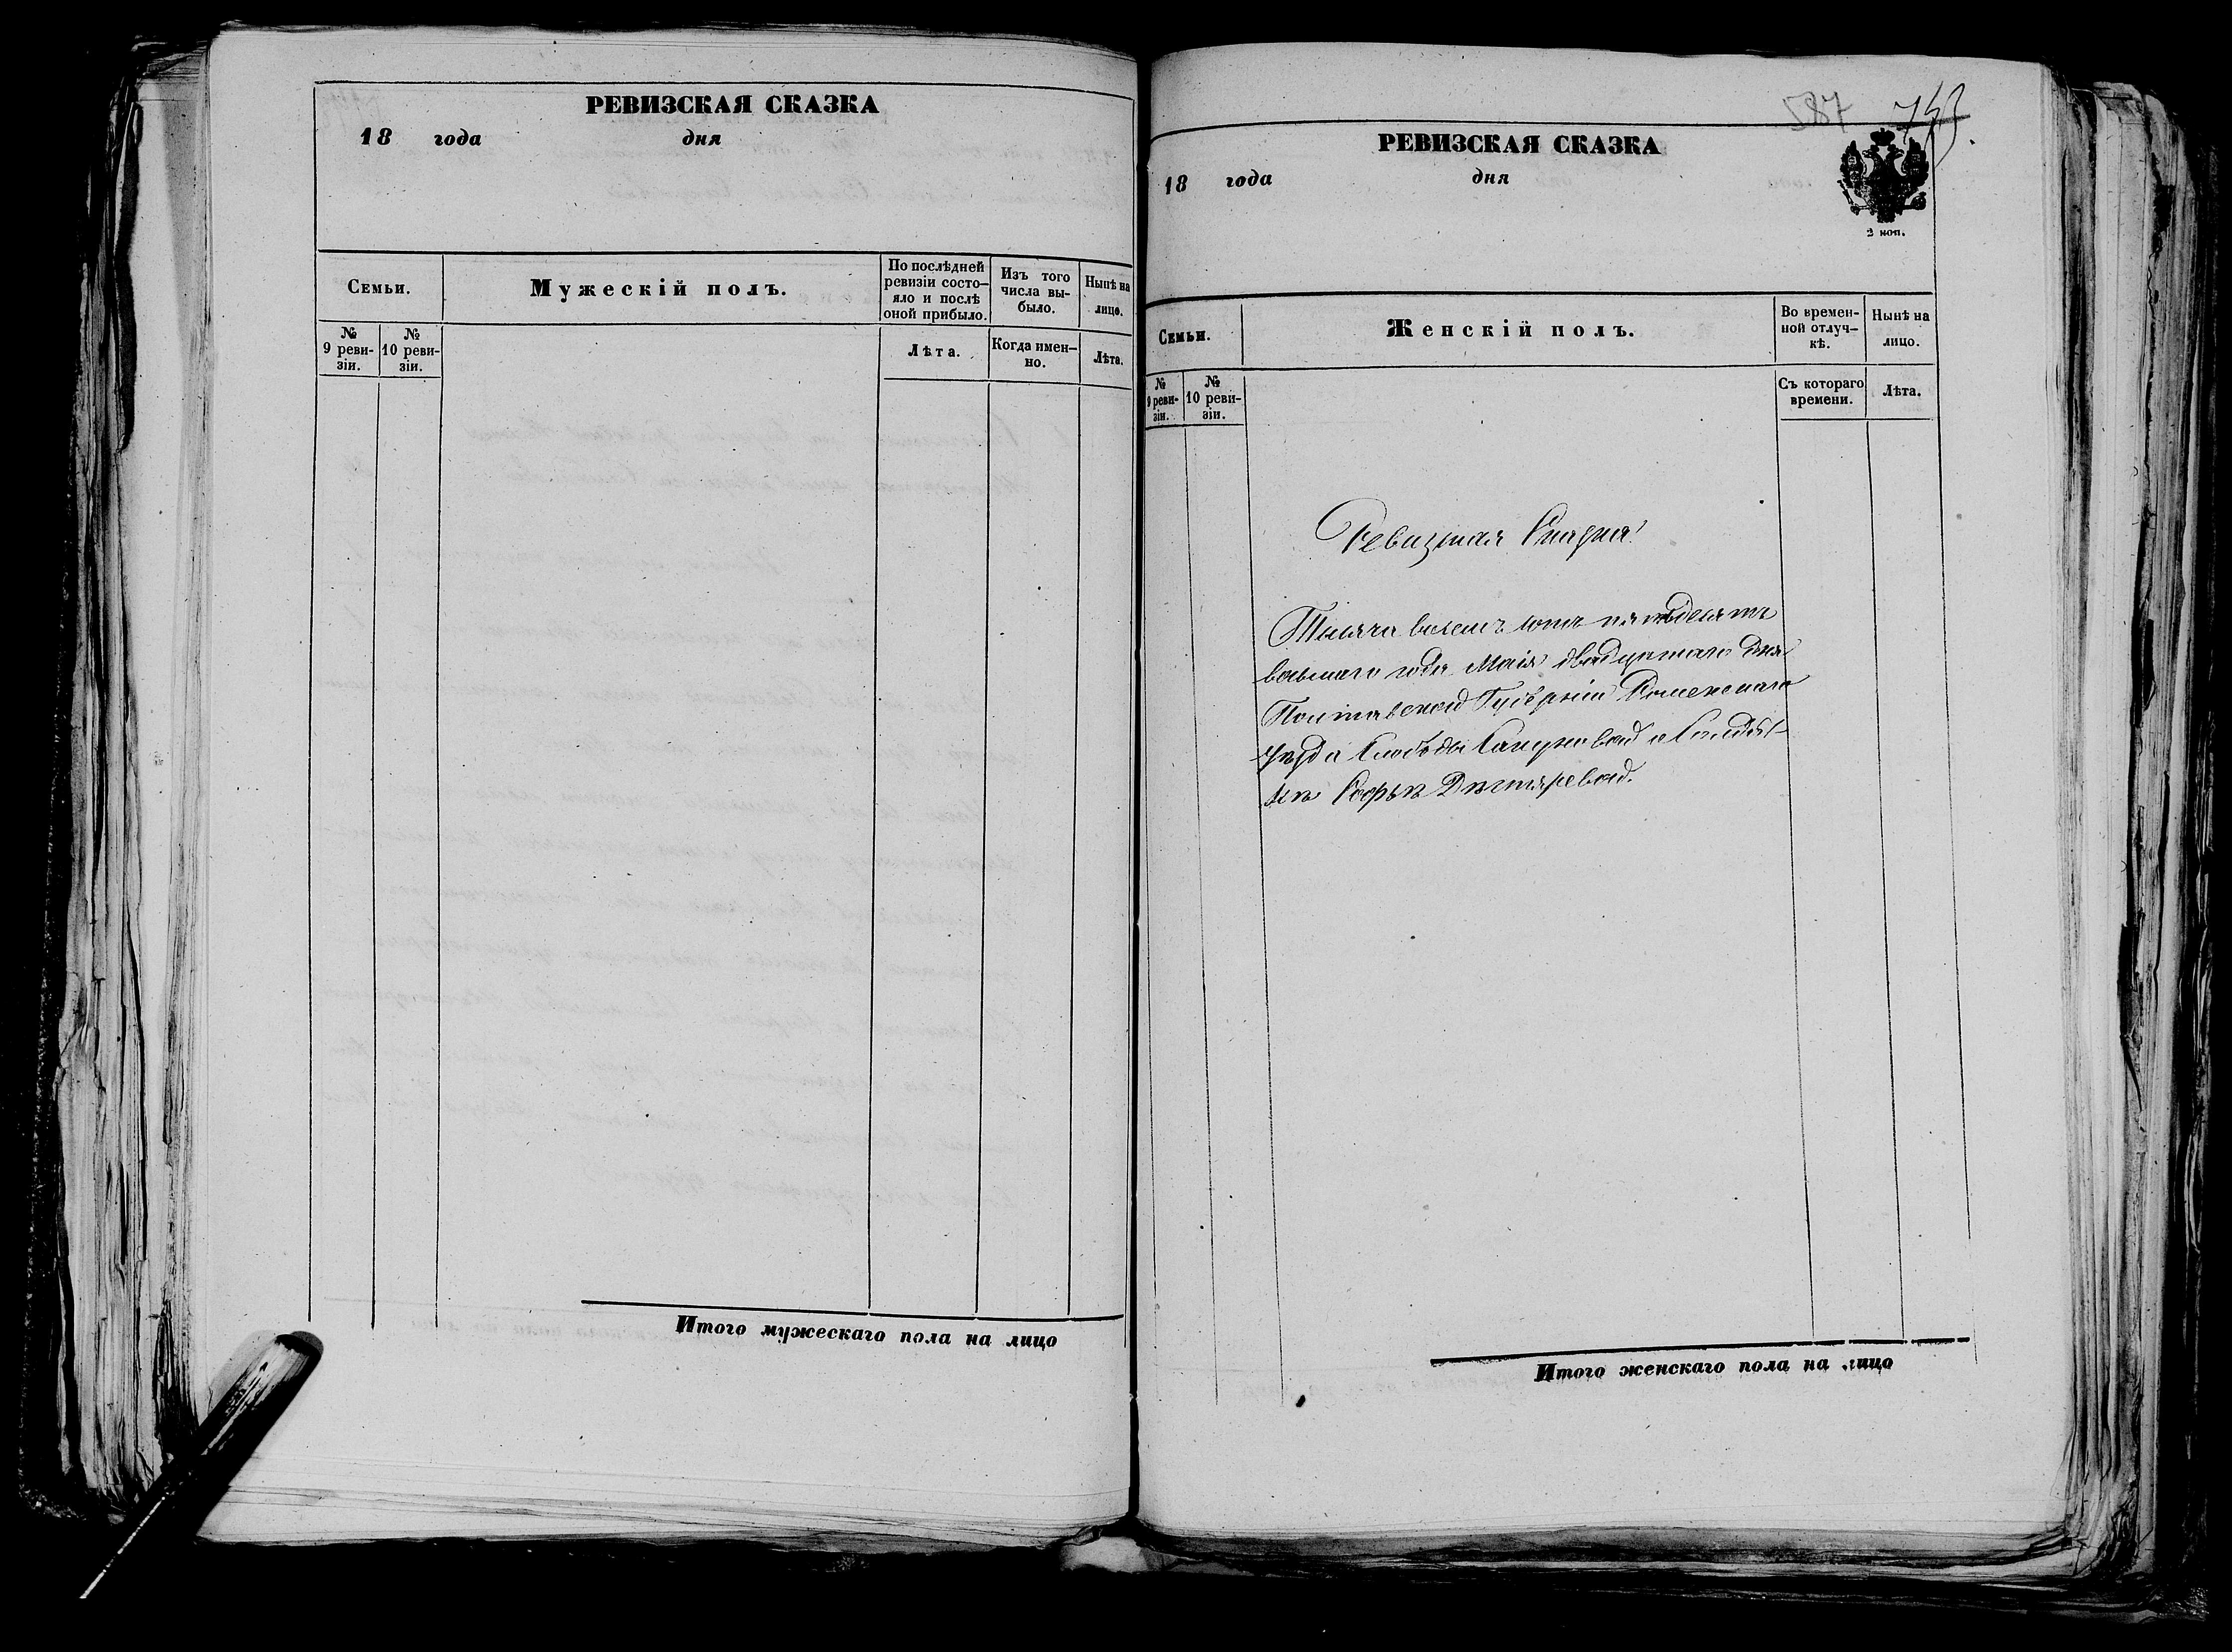 РЕВИЗСКАЯ СКАЗКА
18 года дня
Семьи.
Мужескій полъ.
По послѣдней ревизіи состо-
яло и послѣ
оной прибыло.
Изъ того
числа вы-
было.
Нынѣ на
лицо.
№
9 реви-
зіи.
№
10 реви-
зіи.
Лѣта.
Когда имен-
но.
Лѣта.
Итого мужескаго пола на лицо
587
РЕВИЗСКАЯ СКАЗКА
18 года дня
2 коп.
Семьи.
Женскій полъ.
Во времен-
ной отлуч-
кѣ.
Нынѣ на
лицо.
№
9 реви-
зіи.
№
10 реви-
зіи.
Съ котораго
времени.
Лѣта.
Ревизская Сказка
Тысяча восемъ сотъ пятьдесятъ
восьмаго года Маія двадцатаго дня
Полтавской Губерніи Роменскаго
уѣзда Слободы о Солдат-
кѣ Софьѣ Дѣгтяревой.
Итого женскаго пола на лицо